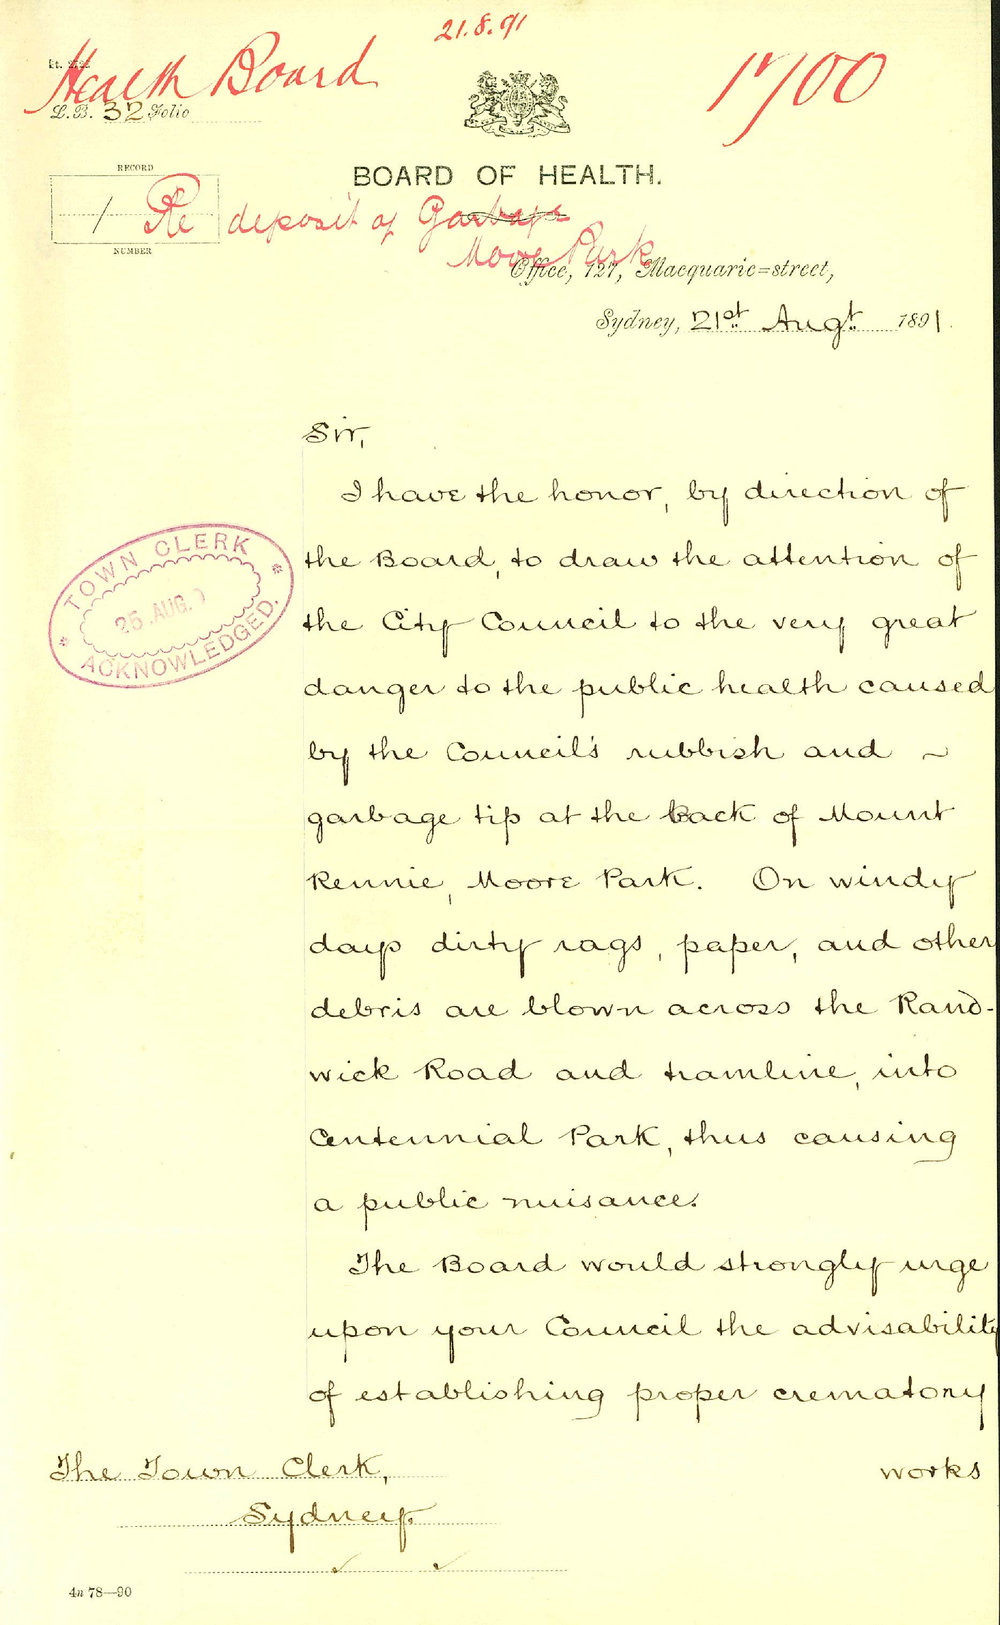 21.8.91
Health Board
1700
L.B. 32 Folio
BOARD OF HEALTH.
RECORD
1
NUMBER
Re deposit of Garbage
Moore Park
Office, 127, Macquarie=street,
Sydney, 21st Augt. 1891.
Sir,
I have the honor, by direction of
the Board, to draw the attention of
the City Council to the very great
danger to the public health caused
by the Council's rubbish and ~
garbage tip at the back of Mount
Rennie, Moore Park. On windy
days dirty rags, paper, and other
debris are blown across the Rand-
wick Road and tramline, into
Centennial Park, thus causing
a public nuisance.
The Board would strongly urge
upon your Council the advisability
of establishing proper crematory
works
TOWN CLERK
25 AUG. 9
ACKNOWLEDGED.
The Town Clerk,
Sydney.
4n 78—90